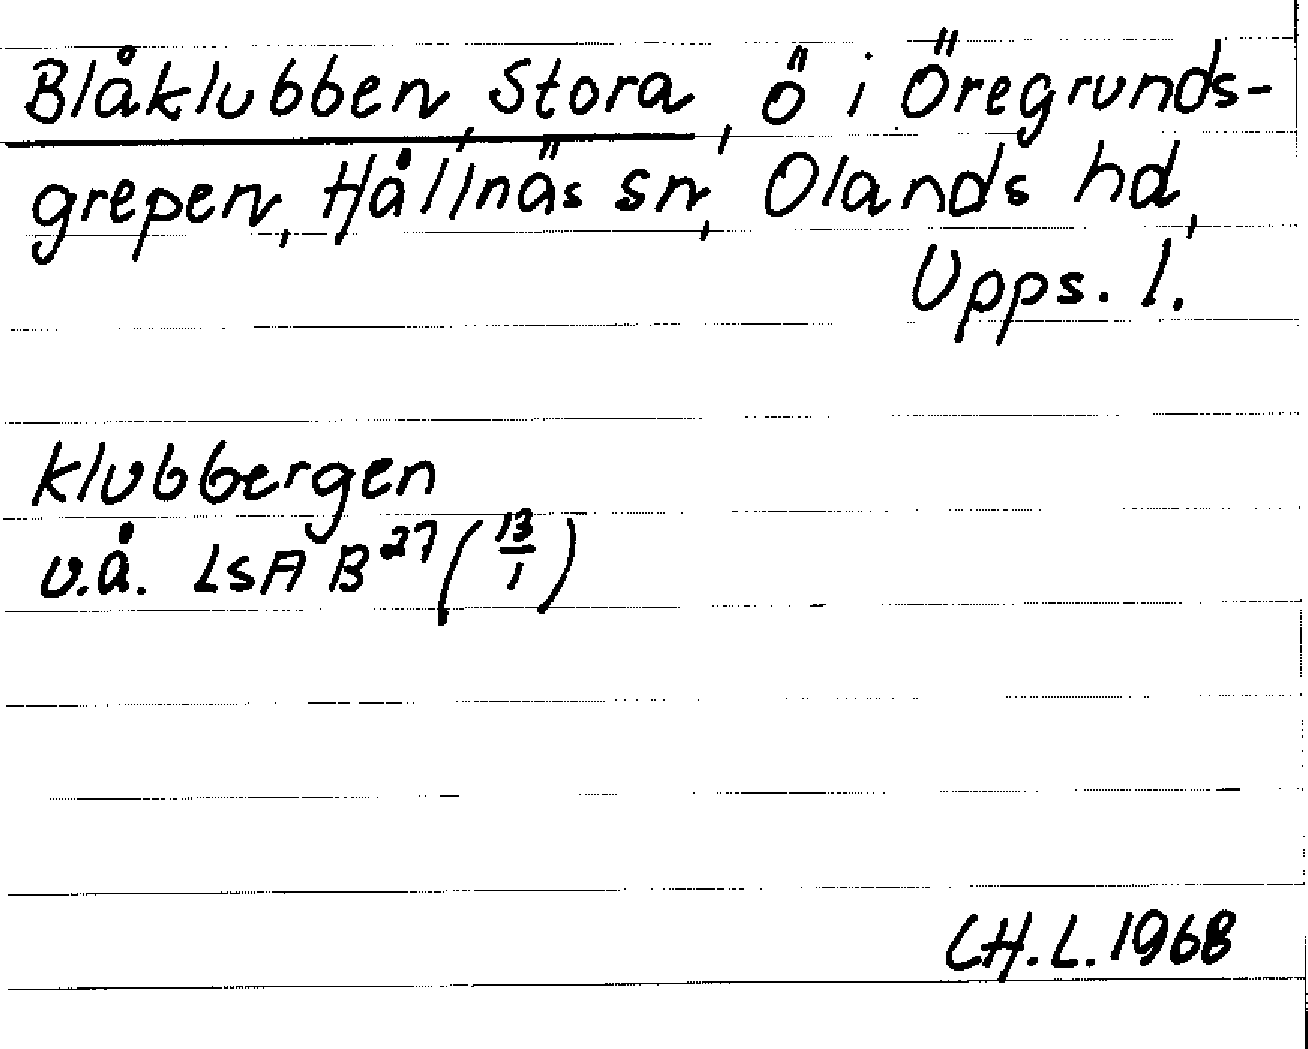 Blåklubben, Stora, ö i Öregrunds-
grepen, Hållnäs sn, Olands hd,
Upps. l.
klubbergen
u.å. LSA B²⁷ (13/1)
CH.L. 1968